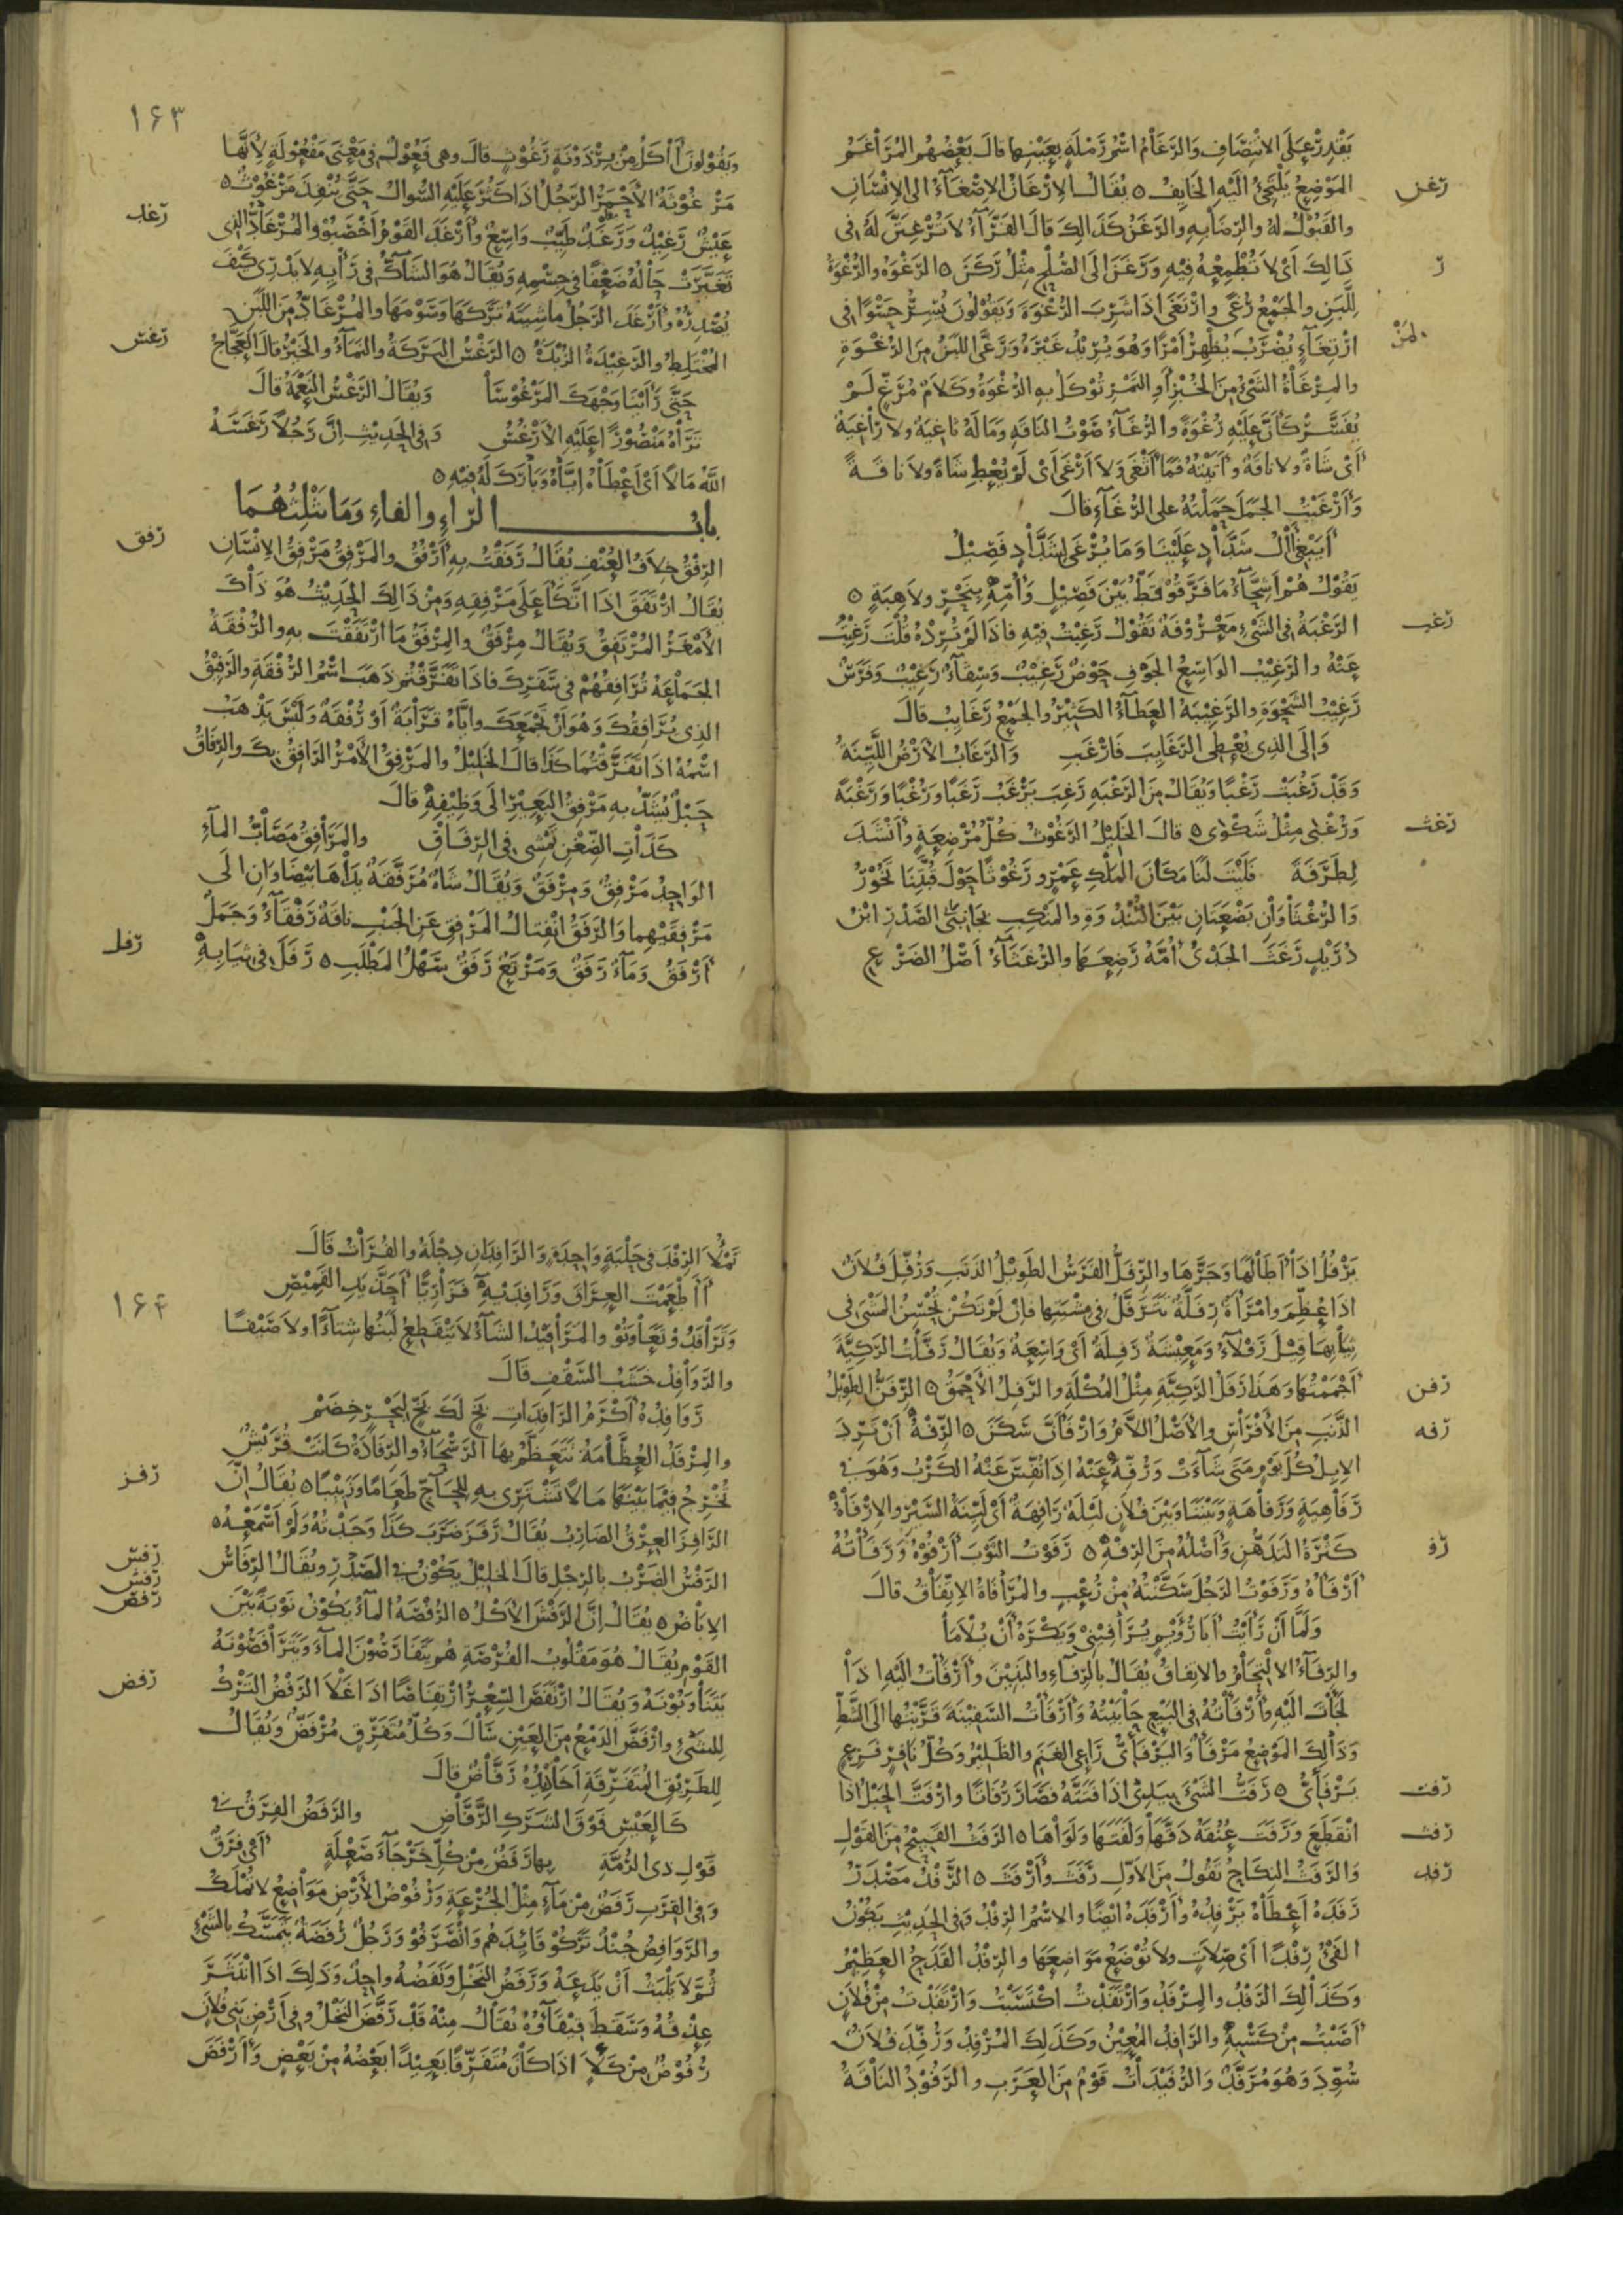 يَقْدِرْ عَلَى الانْتِصَافِ وَالرَّغَامُ اسْمُ رَمْلَةٍ بِعَيْنِها قالَ بَعْضُهُم المُرَاغَمُ
رغن
المَوْضِعُ يَلْتَجِئُ الَيْهِ الخَايِفُ ٥ يُقَالُ الإِرْغَانُ الإِصْغَآءُ الى الإِنْسَانِ
والقَبُوْلُ لهُ والرِّضَا بِهِ والرَّغَنُ كَذَالِكَ قالَ الفَرَّآءُ لاَ تُرْغِنَنَّ لَهُ فى
ر
ذَالِكَ أىْ لاَ تُطْمِعْهُ فِيْهِ وَرَغَنَ الَى الصُّلْحِ مِثْلُ رَكَنَ ٥ الرَّغْوَهُ والرُّغْوَةُ
لِلَّبَنِ والجَمْعُ رُغًى وارْتَغَى اذَا شَرِبَ الرُّغْوَةَ وَيَقُوْلُونَ يُسِرُّ حَسْوًا فى
ارْتِغَآءٍ يُضْرَبُ يُظْهِرُ أمْرًا وَهُوَ يُرِيْدُ غَيْرَهُ وَرَغَّى اللَّبَنُ مِنَ الرُّغْوَةِ
والمِرْغَاةُ الشَّئُ مِنَ الخُبْزِ أوِ التَّمْرِ تُوْكَلُ بِهِ الرُّغْوَةُ وَكَلاَمٌ مُرَغٍّ لَمْ
يُفَسَّرْ كَأنَّ عَلَيْهِ رُغْوَةً والرُّغَآءُ صَوْتُ النَاقَهِ وَمَالَهُ ثَاغِيَةٌ ولاَ رَاغِيَةٌ
أىْ شَاةٌ ولاَ نَاقَةٌ وأتَيْتُهُ فَمَا أثْغَى وَلاَ أرْغَى أىْ لَمْ يُعْطِ شَاةً ولاَ نَاقَةً
وَأرْغَيْتُ الجَمَلَ حَمَلْتُهُ على الرُّغَآءِ قالَ
أيَبْغِى أآلُ شَدَّادٍ عَلَيْنَا وَمَا يُرْغَى لِشَدَّادٍ فَصِيْلُ
يَقُوْلُ هُمْ أشِحَّآءُ مَا فَرَّقُوْا قَطُّ بَيْنَ فَصِيْلٍ وَأُمِّهِ بِنَحْرٍ ولاَ هِبَةٍ ٥
رغب
الرَّغْبَةُ فى الشَّىْءِ مَعْرُوْفَةٌ تَقُوْلُ رَغِبْتُ فِيْهِ فاذَا لَمْ تُرِدْهُ قُلْتَ رَغِبْتُ
عَنْهُ والرَغِيْبُ الوَاسِعُ الجَوْفِ حَوْضٌ رَغِيْبٌ وَسِقَآءٌ رَغِيْبٌ وَفَرَسٌ
رَغِيْبُ الشَّحْوَةِ والرَغِيْبَةُ العَطَآءُ الكَثِيْرُ والجَمْعُ رَغَايِبُ قالَ
وَإلَى الذى يُعْطِى الرَغَايِبَ فَارْغَبِ وَالرَغَابُ الأرْضُ اللَّيِّنَةُ
وَقَدْ رَغُبَتْ رُغْبًا وَيُقَالُ مِنَ الرَغْبَهِ رَغِبَ يَرْغَبُ رَغَبًا وَرُغْبًا وَرَغْبَةً
رغث
وَرُغْبَى مِثْلُ شَكْوَى ٥ قالَ الخَلِيْلُ الرَّغُوْثُ كُلُّ مُرْضِعَةٍ وأنْشَدَ
لِطَرَفَةَ فَلَيْتَ لَنَا مَكَانَ المَلْكِ عَمْرٍو رَغُوْثًا حَوْلَ قُبَّتِنَا تَخُوْرُ
وَالرُّغَثَاوَانِ بَضْعَتَانِ بَيْنَ الثُّنْدُوَةِ والمَنْكِبِ بِجَانِبَىِ الصَّدْرِ ابْنُ
دُرَيْدٍ رَغَثَ الجَدْىُ أُمَّهُ رَضِعَهَا والرُّغَثَآءُ أصْلُ الضَرْعِ
١٦٣
وَيَقُوْلونَ آكَلُ مِنْ بِرْذَوْنَةٍ رَغُوْثٍ قالَ وهى فَعُوْلٌ فى مَعْنَى مَفْعُوْلَةٍ لأَنَّهَا
مَرْغُوْثَةٌ الأَحْمَرُ الرَّجُلُ اذَا كَثُرَ عَلَيْهِ السُّوالُ حَتَّى يَنْفَدَ مَرْغُوْثٌ ٥
رغد
عَيْشٌ رَغِيْدٌ وَرَغَدٌ طَيِّبٌ وَاسِعٌ وأرْغَدَ القَوْمُ أخْصَبُوْا والمُرْغَادُّ الذى
تَغَيَّرَتْ حَالُهُ ضَعْفًا فى جِسْمِهِ وَيُقَالُ هُوَ الشَّآكُّ فى رَأيِهِ لا يَدْرِى كَيْفَ
يُصْدِرُهُ وأرْغَدَ الرَجُلُ مَاشِيَتَهُ تَرَكَهَا وَسَوْمَهَا والمُرْغَادُّ مِنَ اللَّبَنِ
رغس
المُخْتَلِطُ والرَغِيْدَةُ الزُبْدَةُ ٥ الرَّغْسُ البَرَكَةُ والنَمَآءُ والخَيْرُ قالَ العَجَّاجُ
حَتَّى رَأيْنَا وَجْهَكَ المَرْغُوْسَا وَيُقَالُ الرَّغْسُ النِعْمَةُ قالَ
تَرَاهُ مَنْصُوْرًا عَلَيْهِ الأَرْغُسُ وَفى الحَدِيْثِ إنَّ رَجُلاً رَغَسَهُ
اللّهُ مَالاً أىْ أعْطَاهُ إيَّاهُ وَبَارَكَ لَهُ فِيْهِ ٥
بابُ الرّاءِ والفاءِ وَمَا يَثْلِثُهُمَا
رفق
الرِّفْقُ خِلاَفُ العُنْفِ يُقَالُ رَفَقْتُ بِهِ أرْفُقُ والمَرْفِقُ مَرْفِقُ الإِنْسَانِ
يُقَالُ ارْتَفَقَ اذَا اتَّكَأ عَلَى مَرْفِقِهِ وَمِنْ ذَالِكَ الحَدِيْثُ هُوَ ذَاكَ
الأَمْغَرُ المُرْتَفِقُ وَيُقَالُ مِرْفَقٌ والمِرْفَقُ مَا ارْتَفَقْتَ بِهِ والرُّفْقَةُ
الجَمَاعَةُ تُرَافِقُهُمْ فى سَفَرِكَ فاذَا تَفَرَّقْتُمْ ذَهَبَ اسْمُ الرُّفْقَةِ والرَفِيْقُ
الذى يُرَافِقُكَ وَهُوَ أنْ يَجْمَعَكَ وايَّاهُ قَرَابَةٌ أوْ رُفْقَةٌ وَلَيْسَ يَذْهَبُ
اسْمُهُ اذَا تَفَرَّقْتُمَا كَذَا قالَ الخَلِيْلُ والمَرْفِقُ الأَمْرُ الرَافِقُ بِكَ والرِفَاقُ
حَبْلٌ يُشَدُّ بِهِ مَرْفِقُ البَعِيْرِ الَى وَظِيْفِهِ قالَ
كَذَاتِ الضِّغْنِ تَمْشِى فى الرِّفَاقِ والمَرَافِقُ مَصَابُّ المآءِ
الوَاحِدُ مَرْفِقٌ وَمِرْفَقٌ وَيُقَالُ شَاةٌ مُرَفَّقَةٌ يَدَاهَا بَيْضَاوَانِ الَى
مَرْفِقَيْهِما وَالرَفَقُ انْفِتَالُ المَرْفِقِ عَنِ الجَنْبِ نَاقَةٌ رَفْقَآءُ وَجَمَلٌ
رفل
أرْفَقُ وَمَآءٌ رَفَقٌ وَمَرْتَعٌ رَفَقٌ سَهْلُ المَطْلَبِ ٥ رَفَلَ فى ثِيَابِهِ
يَرْفُلُ اذَا أطَالَهَا وَجَرَّهَا والرِّفَلُّ الفَرَسُ الطَوِيْلُ الذَنَبِ وَرُفِّلَ فُلاَنٌ
اذَا عُظِّمَ وامْرَأةٌ رَفِلَةٌ تَتَرَفَّلُ فى مِشْيَتِها فانْ لَمْ تَكُنْ تُحْسِنُ المَشْىَ فى
ثِيَابِهَا قِيْلَ رَفْلآءُ وَمَعِيْشَةٌ رَفِلَةٌ أىْ وَاسِعَةٌ وَيُقَالُ رَفَّلْتُ الرَكِيَّةَ
رفن
أجْمَمْتُهَا وَهَذَا رَفَلُ الرَكِيَّةِ مِثْلُ المُكْلَةِ والرَّفِلُ الأَحْمَقُ ٥ الرِّفَنُّ الطَوِيْلُ
رفه
الذَّنَبِ مِنَ الأَفْرَاسِ والأصْلُ اللاَّمُ وَارْفَأنَّ سَكَنَ ٥ الرِّفْهُ أنْ تَرِدَ
الإبِلُ كُلَّ يَوْمٍ مَتَى شَآءَتْ وَرُفِّهَ عَنْهُ اذَا نُفِّسَ عَنْهُ الكَرْبُ وَهُوَ فى
رَفَاهِيَةٍ وَرَفَاهَةٍ وَبَيْنَنَا وَبَيْنَ فُلاَنٍ لَيْلَةٌ رَافِهَةٌ أىْ لَيِّنَةُ السَّيْرِ والإرْفَاهُ
رفو
كَثْرَةُ التَدَهُّنِ وَأصْلُهُ مِنَ الرِّفْهِ ٥ رَفَوْتُ الثَّوْبَ أرْفُوْهُ وَرَفَأتُهُ
أرْفَأهُ وَرَفَوْتُ الرَّجُلَ سَكَّنْتُهُ مِنْ رُعْبٍ والمُرَافَاةُ الاِتِّفَاقُ قالَ
وَلَمَّا أنْ رَأيْتُ أبَا رُوَيْمٍ يُرَافِيْنِى وَيَكْرَهُ أنْ يُلاَمَا
والرِّفَآءُ الاِلْتِحَامُ والاتِّفَاقُ يُقَالُ بِالرِّفَآءِ والبَنِيْنَ وأرْفَأتُ الَيْهِ اذَا
لَجَأتَ الَيْهِ وأرْفَأتُهُ فى البَيْعِ حَابَيْتُهُ وَأرْفَأتُ السَّفِيْنَةَ قَرَّبْتُها الَى الشَّطِّ
وَذَالِكَ المَوْضِعُ مَرْفَأٌ وَاليَرْفَأىُّ رَاعِى الغَنَمِ والظَلِيْمُ وَكُلُّ نَافِرٍ فَزِعٍ
رفت
يَرْفَأىٌّ ٥ رَفَتُّ الشَّىْءَ بِيَدِىْ اذَا فَتَتَّهُ فَصَارَ رُفَاتًا وارْفَتَّ الحَبْلُ اذا
رفث
انْقَطَعَ وَرَفَتَ عُنُقَهُ دَقَّهَا وَلَفَتَهَا وَلَوَاهَا ٥ الرَفَثُ القَبِيْحُ مِنَ القَوْلِ
رفد
وَالرَّفَثُ النِكَاحُ تَقُوْلُ مِنَ الأوّلِ رَفَثَ وأرْفَثَ ٥ الرَّفْدُ مَصْدَرُ
رَفَدَهُ أعْطَاهُ يَرْفِدُهُ وأرْفَدَهُ ايْضًا والاسْمُ الرِفْدُ وَفى الحَدِيْثِ يَكُوْنُ
الفَىْءُ رِفْدًا أىْ صِلاَتٍ ولاَ تُوْضَعُ مَوَاضِعَهَا والرِّفْدُ القَدَحُ العَظِيْمُ
وَكَذَالِكَ الرَّفْدُ والمِرْفَدُ وَارْتَفَدْتُ اكْتَسَبْتُ وَارْتَفَدْتُ مِنْ فُلاَنٍ
أصَبْتُ مِنْ كَسْبِهِ والرَّافِدُ المُعِيْنُ وَكَذَلِكَ المُرْفِدُ وَرُفِّدَ فُلاَنٌ
سُوِّدَ وَهُوَ مُرَفَّدٌ وَالرُّفَيْدَاتُ قَوْمٌ مِنَ العَرَبِ والرَّفُوْدُ النَاقَةُ
تَمْلأُ الرِّفْدَ فى حَلْبَةٍ وَاحِدَةٍ وَالرَافِدَانِ دِجْلَةُ والفُرَاتُ قَالَ
١٦٤
أأطْعَمْتَ العِرَاقَ وَرَافِدَيْهِ فَزَارِيًّا أحَذَّ يَدِ القَمِيْصِ
وَتَرَافَدُوْا تَعَاوَنُوْا والمَرَافِيْدُ الشَّآءُ لاَ يَنْقَطِعُ لَبَنُهَا شِتآءً ولاَ صَيْفًا
والرَّوَافِدُ خَشَبُ السَّقْفِ قَالَ
رَوَافِدُهُ أكْرَمُ الرَافِدَاتِ بَخٍ لَكَ بَخٍّ لِبَحْرٍ خِضَمْ
والمِرْفَدُ العُظَّامَةُ تَتَعَظَّمُ بِهَا الرَّسْحَآءُ والرِّفَادَةُ كَانَتْ قُرَيْشٌ
رفز
تُخْرِجُ فِيْمَا بَيْنَهَا مَالاً تَشْتَرِى بِهِ لِلْحَاجِّ طَعَامًا وَزَبِيْبًا ٥ يُقَالُ انَّ
الرَّافِزَ العِرْقُ الضَارِبُ يُقَالُ رَفَزَ ضَرَبَ كَذَا وَجَدْتُهُ وَلَمْ أسْمَعْهُ ٥
رفس
الرَفْسُ الضَرْبُ بِالرِجْلِ قالَ الخَلِيْلُ يَكُوْنُ فى الصَدْرِ ويُقَالُ الرِّفَاسُ
رفش
رفص
الإبَاضُ ٥ يُقَالُ انَّ الرَّفْشَ الأَكْلُ ٥ الرُّفْصَةُ المآءُ يَكُوْنُ نَوْبَةً بَيْنَ
القَوْمِ يُقَالُ هُوَ مَقْلُوْبُ الفُرْصَةِ هُمْ يَتَفَارَصُوْنَ المآءَ وَيَتَرَافَصُوْنَهُ
رفض
يَتَنَاوَبُوْنَهُ وَيُقَالُ ارْتَفَصَ السِّعْرُ ارْتِفَاصًا اذَا غَلاَ الرَّفْضُ التَرْكُ
لِلشَئِ وارْفَضَّ الدَمْعُ مِنَ العَيْنِ سَالَ وَكُلُّ مُتَفَرِّقٍ مُرْفَضٌّ وَيُقَالُ
لِلطَرِيْقِ المُتَفَرِّقَةِ أخَادِيْدُهُ رِفَاضٌ قَالَ
كَالعِيْسِ فَوْقَ الشَّرَكِ الرِّفَاضِ والرَّفَضُ الفِرَقُ فى
قَوْلِ ذى الرُّمَّةِ بِهَا رَفَضٌ مِنْ كُلِّ خَرْجَآءَ صَعْلَةٍ أىْ فِرَقٌ
وَفى القِرَبِ رَفَضٌ مِنْ مَآءٍ مِثْلُ الجُرْعَةِ وَرُفُوْضُ الأَرْضِ مَوَاضِعُ لا تُمْلَكُ
والرَّوَافِضُ جُنْدٌ تَرَكُوْا قَائِدَهُمْ وَانْصَرَفُوْا وَرَجُلٌ رُفَضَةٌ يَتَمَسَّكُ بالشَّىْءِ
ثُمَّ لاَ يَلْبَثُ أنْ يَدَعَهُ وَرَفَضُ النَخْلِ وَنَفَضُهُ واحِدٌ وَذَلِكَ اذَا انْتَشَرَ
عِذْقُهُ وَسَقَطَ قِيْقَآؤُهُ يُقَالُ مِنْهُ قَدْ رَفَّضَ النَخْلُ وفى أرْضِ بَنى فُلاَنٍ
رُفُوْضٌ مِنْ كَلاٍ اذَا كَانَ مُتَفَرِّقًا بَعِيْدًا بَعْضُهُ مِنْ بَعْضٍ وَأرْفَضَ